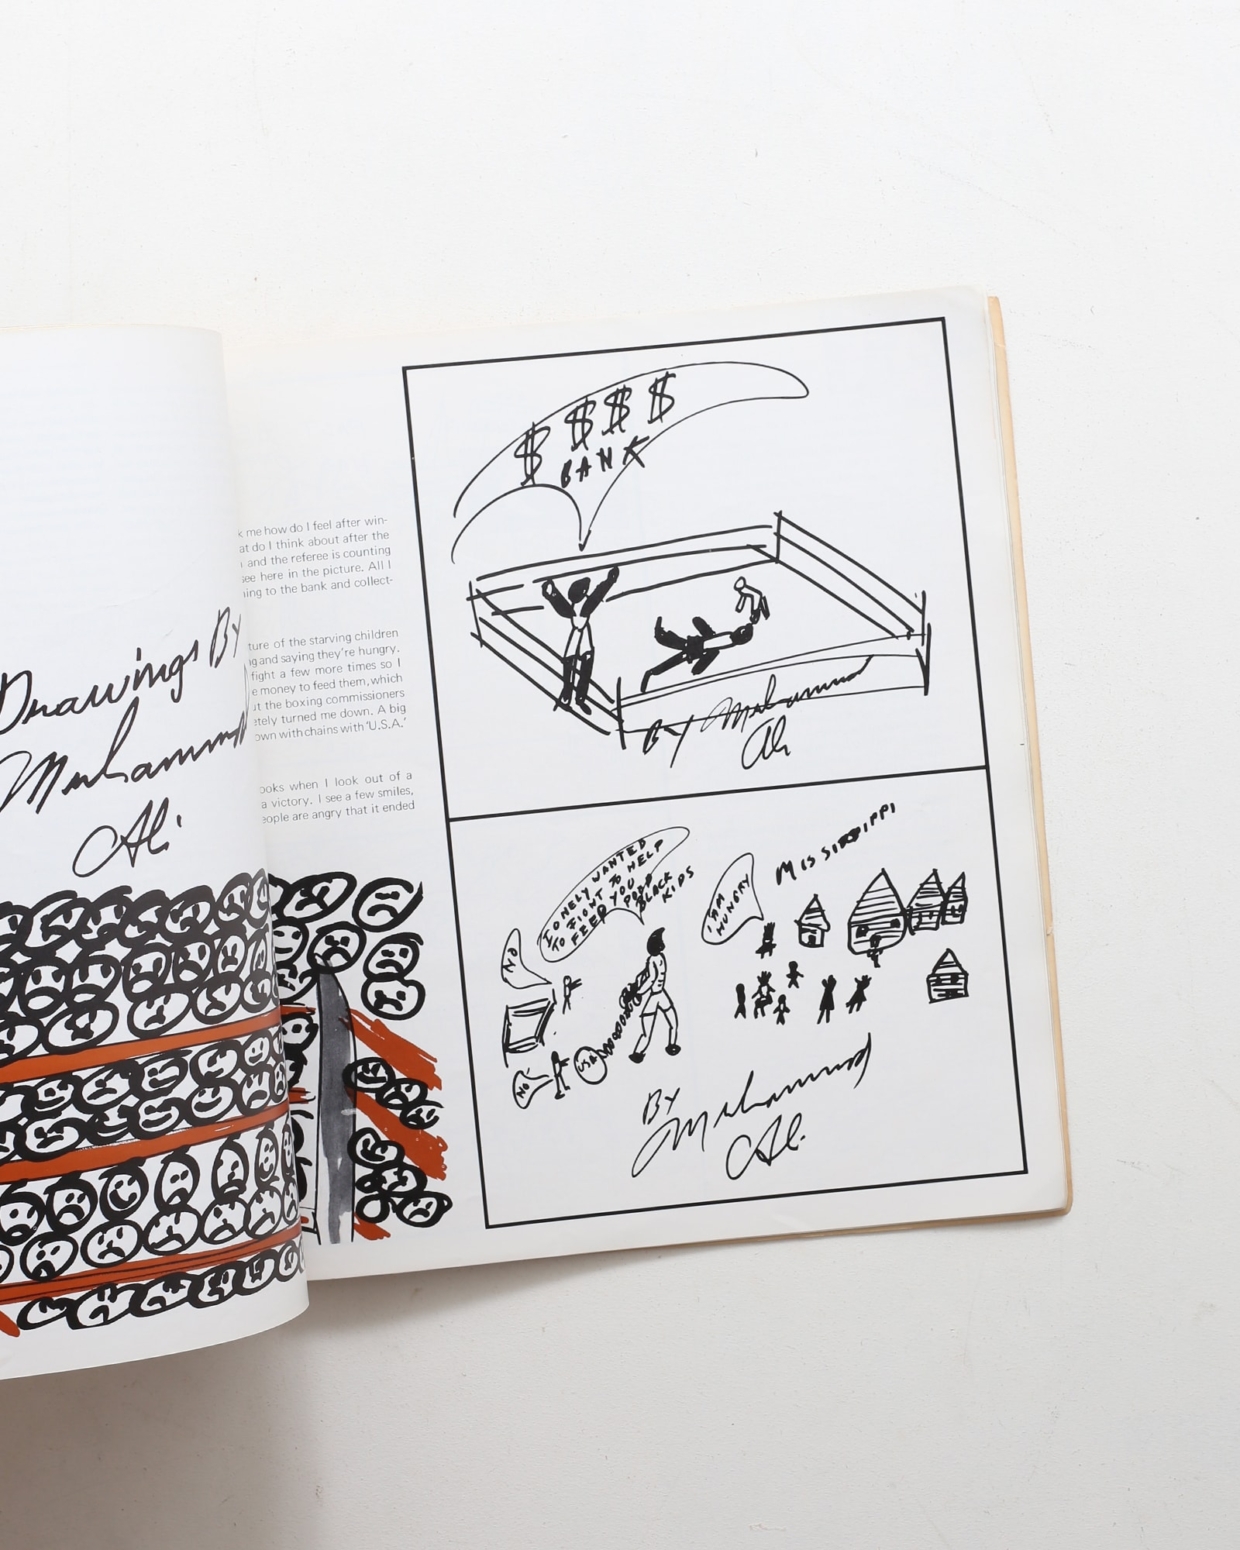 Drawings By
Muhammad
Ali.
k me how do I feel after win-
at do I think about after the
and the referee is counting
see here in the picture. All I
ning to the bank and collect-
ture of the starving children
g and saying they're hungry.
fight a few more times so I
e money to feed them, which
ut the boxing commissioners
etely turned me down. A big
own with chains with 'U.S.A.'
ooks when I look out of a
a victory. I see a few smiles,
eople are angry that it ended
$ $ $ $
BANK
By Muhammad
Ali
I ONELY WANTED
TO FIGHT TO HELP
FEED YOU
POOR
BLACK
KIDS
NO
NO
USA
I AM
HUNGRY
MISSISSIPPI
By
Muhammad
Ali.